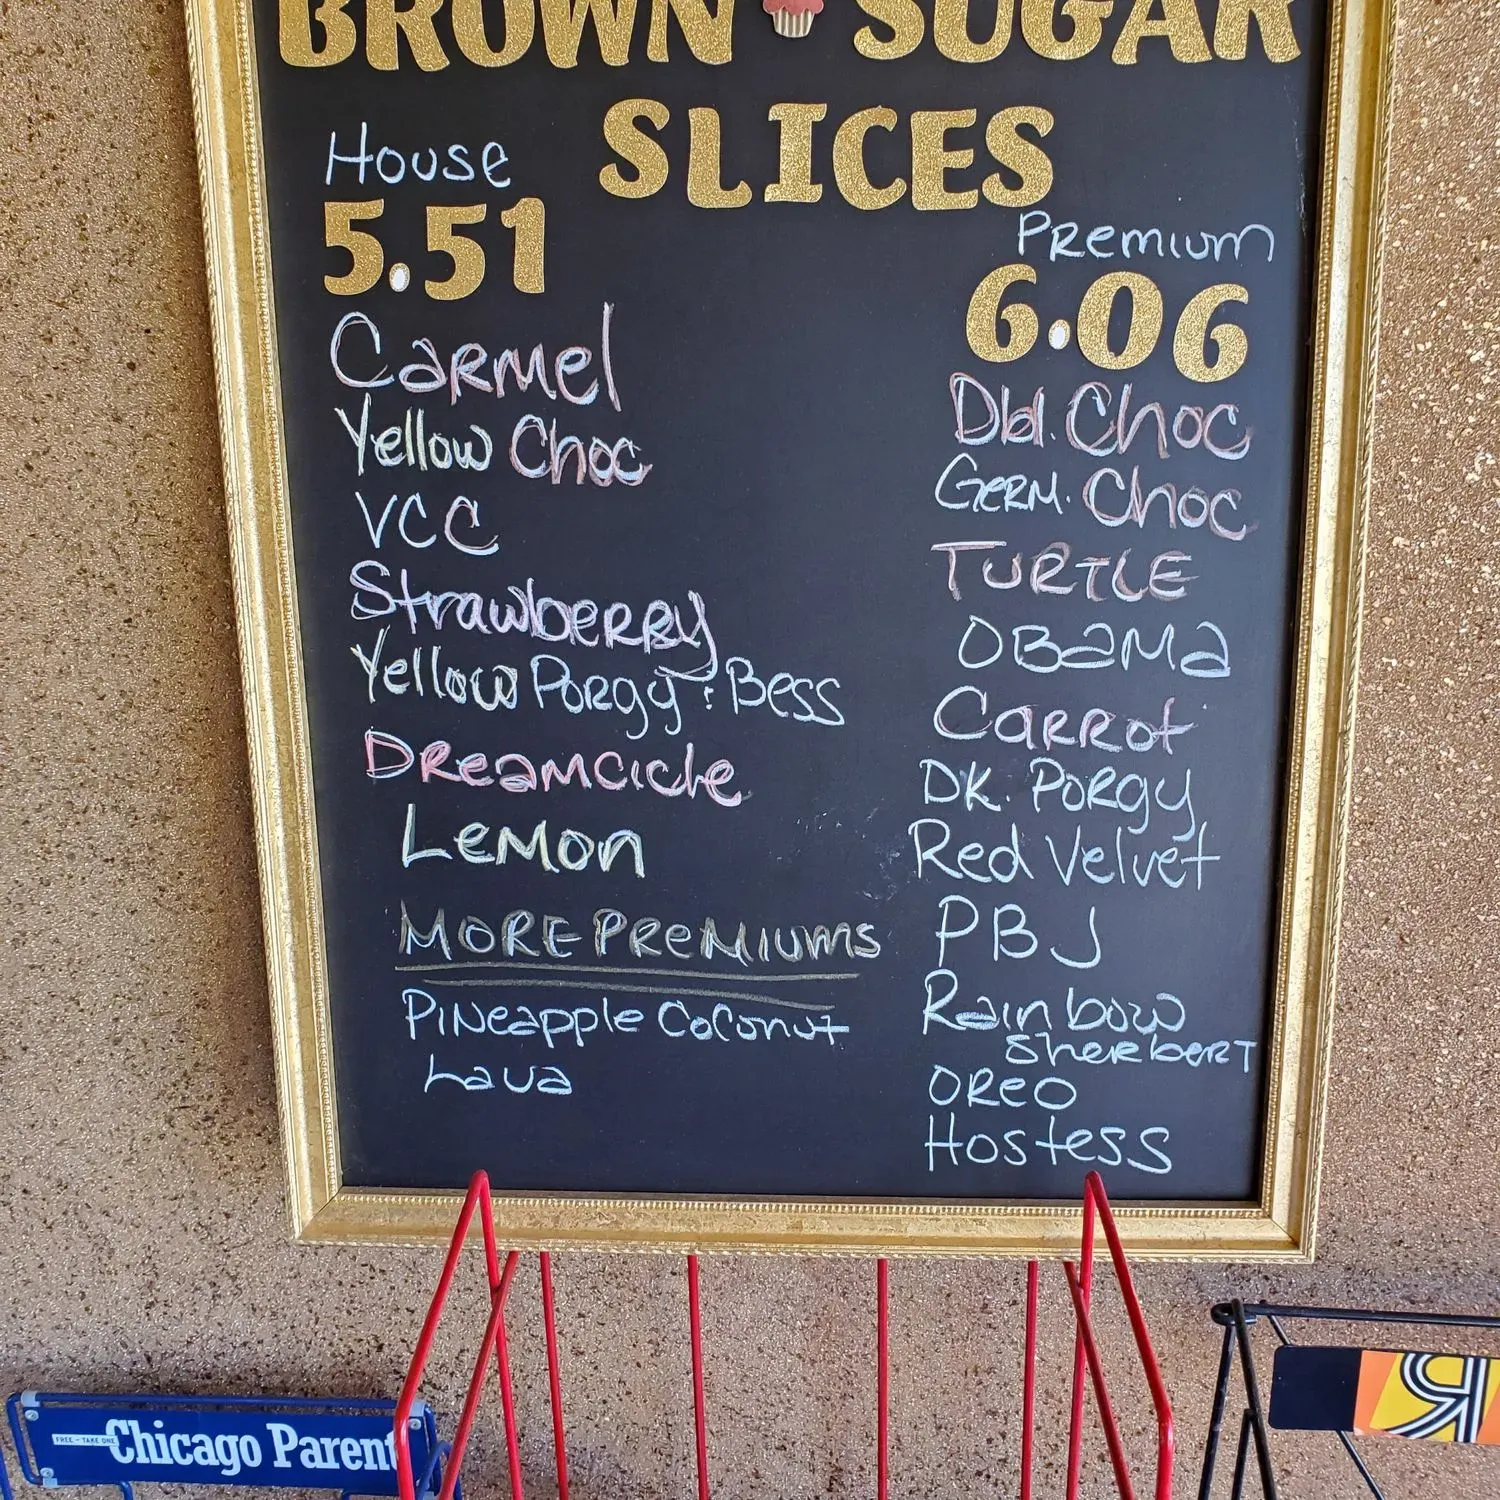 BROWN SUGAR
SLICES
House
5.51
Carmel
Yellow Choc
VCC
Strawberry
Yellow Porgy & Bess
Dreamcicle
Lemon
MORE PREMIUMS
Pineapple Coconut
Lava
Premium
6.06
Dbl. Choc
Germ. Choc
TURTLE
OBAMA
Carrot
DK. Porgy
Red Velvet
PBJ
Rainbow
Sherbert
OREO
Hostess
FREE - TAKE ONE
Chicago Parent
R